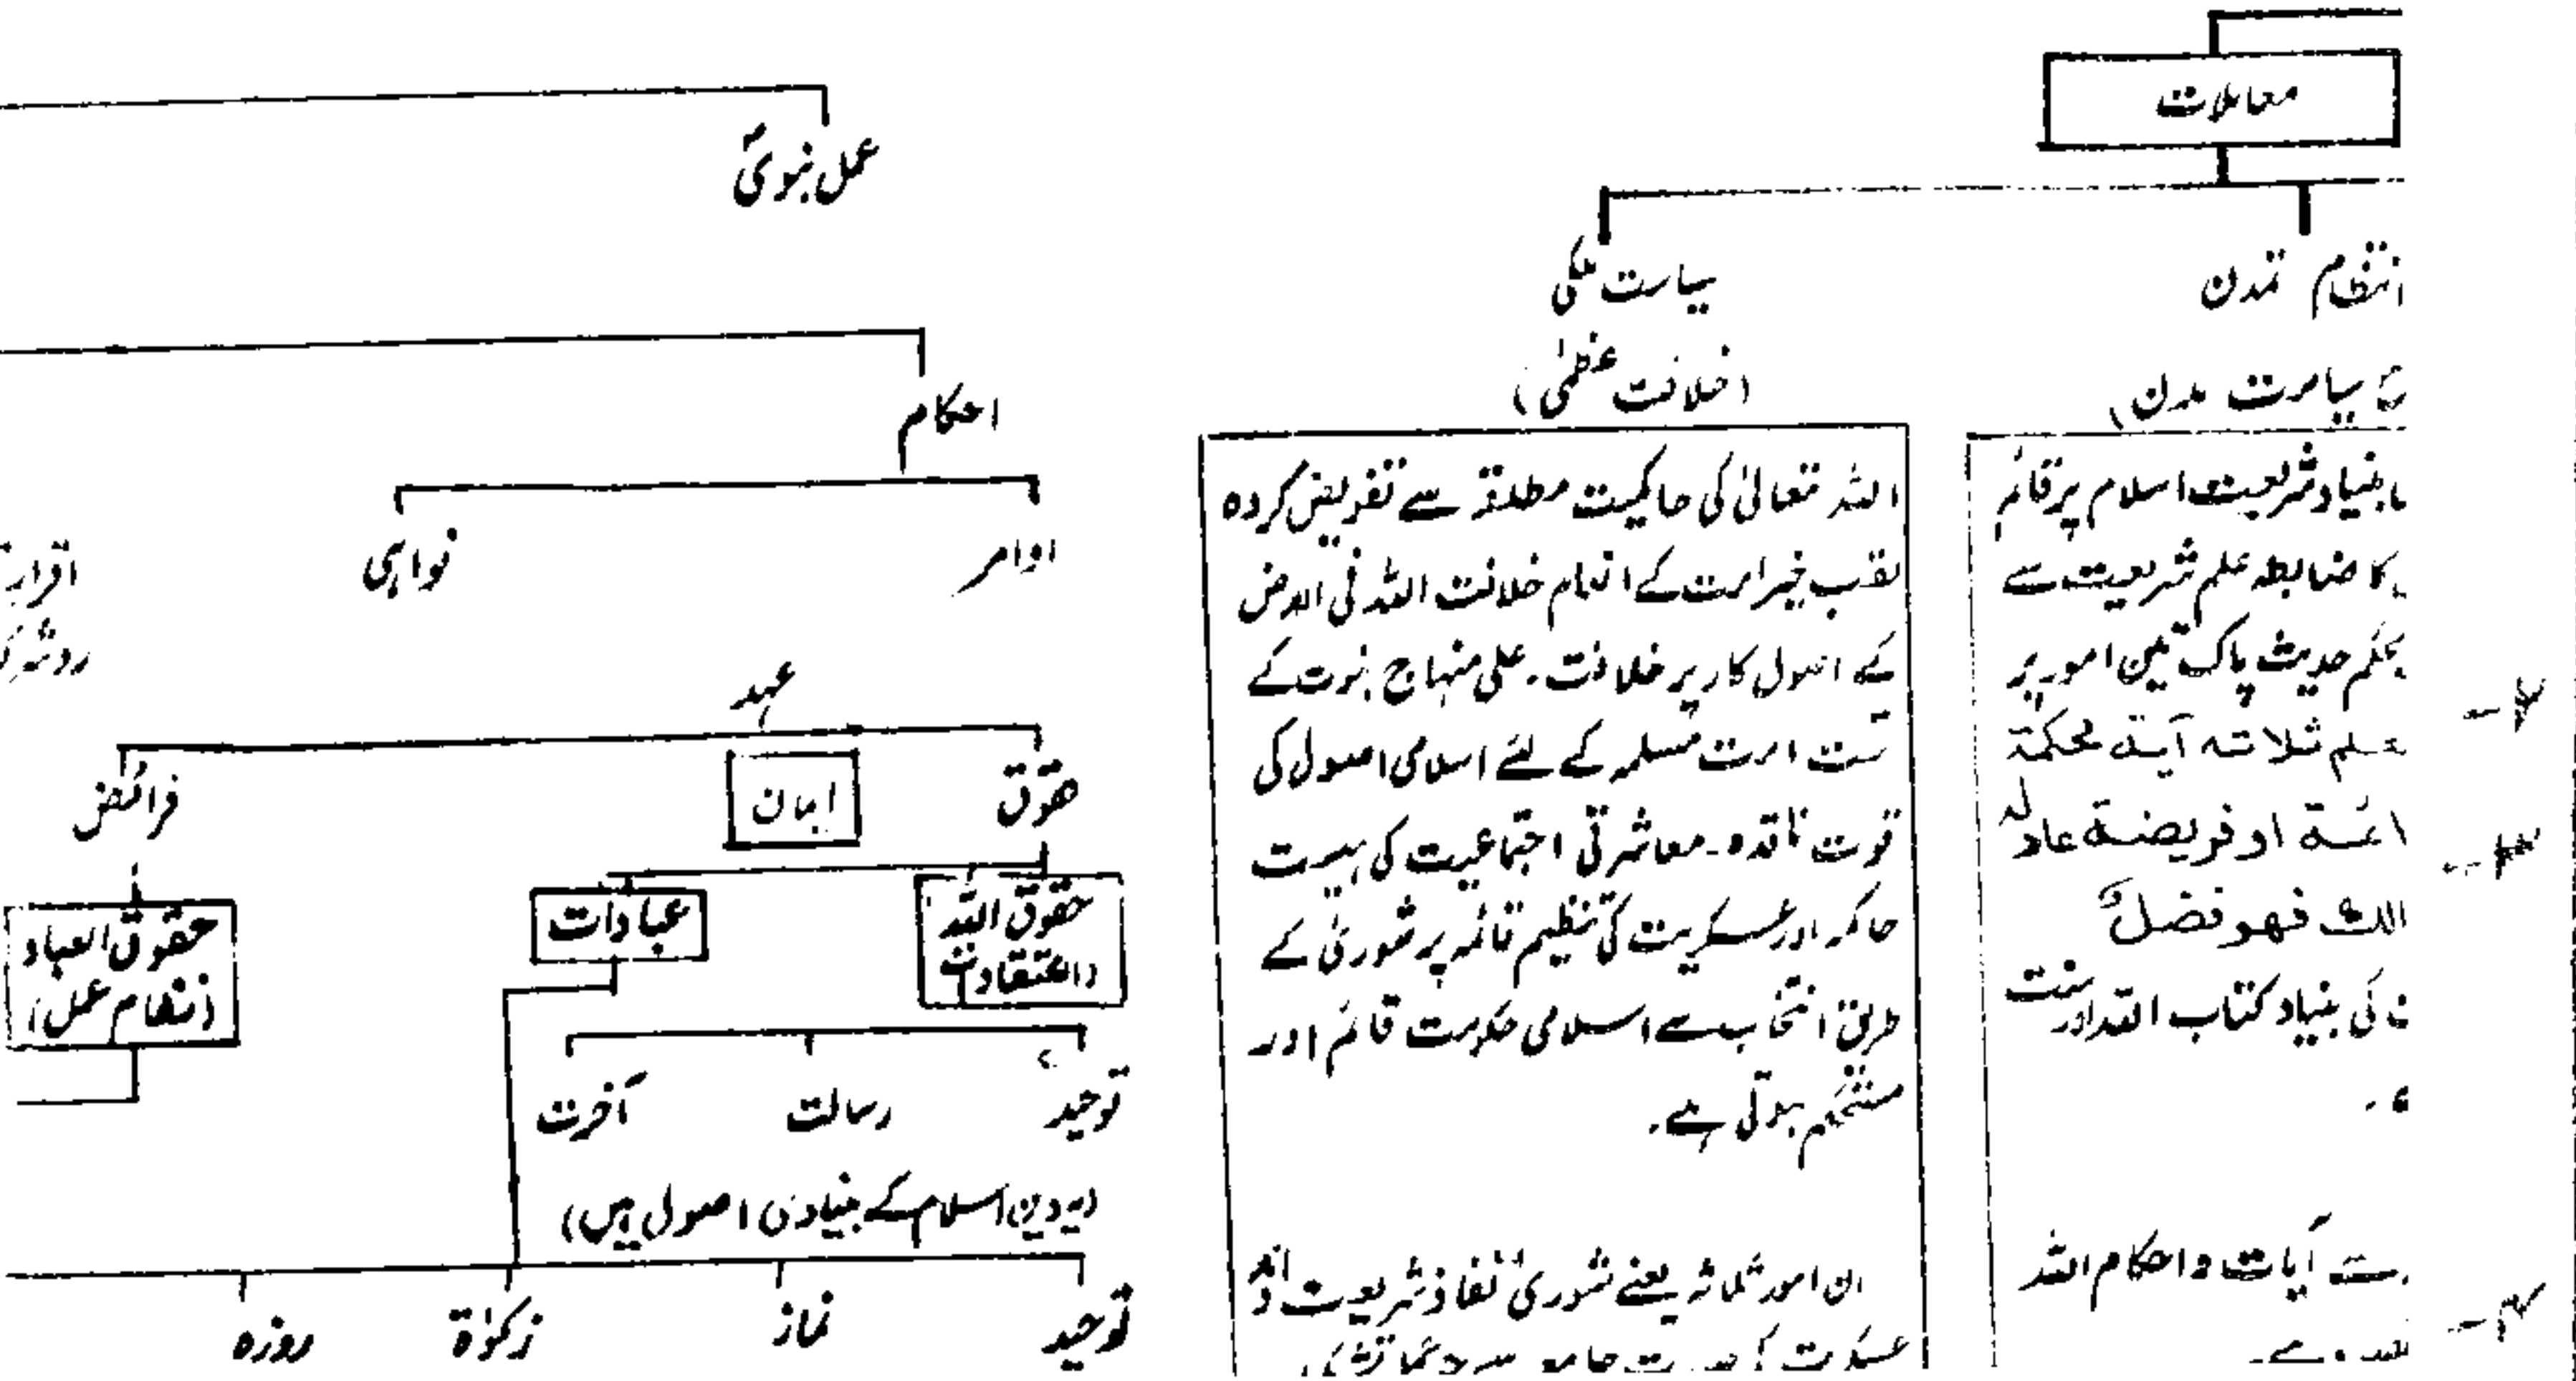 معاملات
انتظام تمدن
سیاست مدن)
بنیاد شریعت اسلام پر قائم
کا ضابطہ علم شریعت سے
بحکم حدیث پاک تین امور پر
علم ثلاثہ آیة محکمة
او فریضة عادلہ
فهو فضل
کی بنیاد کتاب اللہ اور سنت
آیات و احکام اللہ
سیاست ملکی
(خلافت عظمیٰ)
اللہ تعالیٰ کی حاکمیت مطلقہ سے تفویض کردہ
لقب خیر امت کے انعام خلافت اللہ فی الارض
کے اصول کار پر خلافت۔ علی منہاج نبوت کے
امت مسلمہ کے لئے اسلامی اصول کی
قوت نافذہ۔ معاشرتی اجتماعیت کی ہیئت
حاکمہ اور عسکریت کی تنظیم قائمہ پر شوریٰ کے
طریق انتخاب سے اسلامی حکومت قائم اور
مستحکم ہوتی ہے۔
ان امور ثلاثہ یعنے شوریٰ نفاذ شریعت اور
عمل نبویؐ
احکام
اوامر
نواہی
عہد
حقوق
ایمان
فرائض
حقوق اللہ
(اعتقادات)
عبادات
حقوق العباد
(نظام عمل)
توحید
رسالت
آخرت
(یہ دین اسلام کے بنیادی اصول ہیں)
توحید
نماز
زکوٰة
روزہ